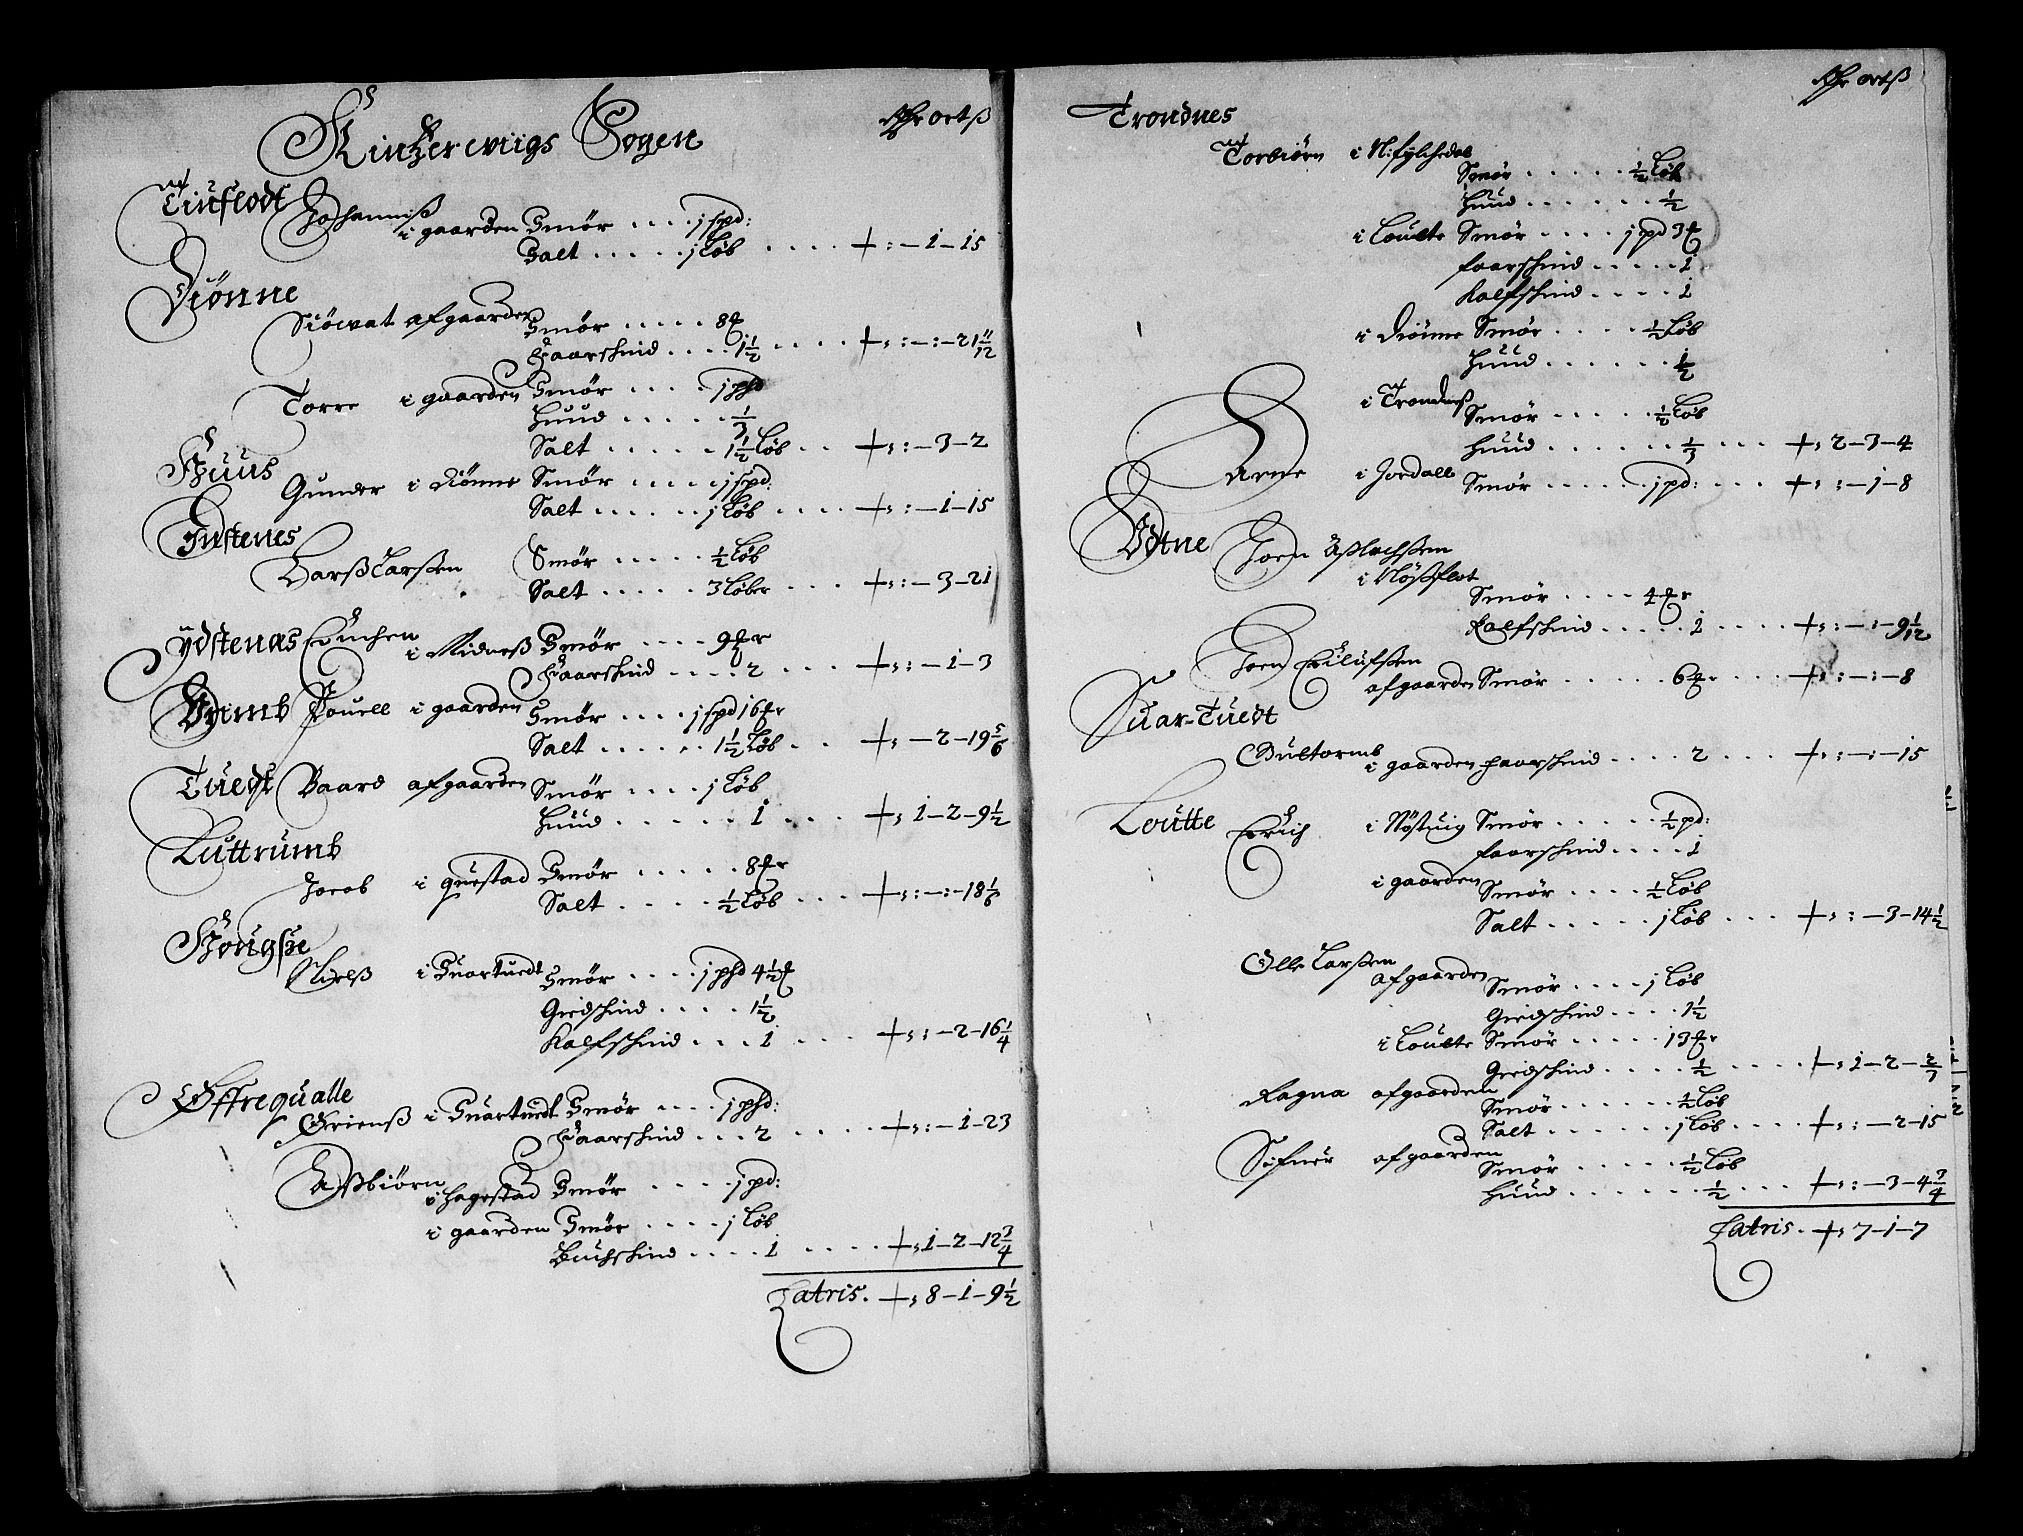 Kintzerwiigs Sogen
Rdr ortß
Tiuflodt Johanniß
i gaarden Smør .... j spd:
Salt ..... j Løb .... +:—1—15
Diønne
Siøwat afgaarden
Smør ..... 8
Faarskind .... 1½ .... +:—:—21 11/12
Torre i gaarden Smør .... j pd
Huud ..... 1/3
Salt ..... 1½ Løb .. +:—3—2
Huus
Gunder i Diønne Smør .... j spd.
Salt ...... j Løb .... +:—1—15
Instenes
Larß Larßen Smør .... ½ Løb
Salt ..... 3 Løber ... +:—3—21
ÿdstenæs Erichen
i Ridneß Smør .... 9
Faarskind .... 2 ... +:—1—3
Vrimb Pouell i gaarden Smør .... j spd 16
Salt ...... 1½ Løb .. +:—2—19 5/6
Tuedt Baard afgaarden Smør .... j Løb
Huud ...... 1 ... + 1—2—9½
Luttrumb
Jacob i questad Smør ..... 8
Salt .... ½ Løb ... +:—:—18 1/6
Hougse
Nielß i Suartuedt Smør .... j pd 4½
Giedskind .... 1½
Kalfskind ... 1 ... +:—2—16¼
Offrequalle
Brienß i Suartuedt Smør .... j pd:
Faarskind ... 2 .... +:—1—23
Aßbiørn
i Hagestad Smør .... j pd:
i gaarden Smør .... j Løb
Buchskind .... 1 .... + 1—2—12¾
Latris. + 8—1—9½
Rdr ortß
Trondnes
Torbiørn i N:fylchedal
Smør ..... ½ Løb
Huud ...... ½
i Loutte Smør .... j pd 3
faarskind ..... 1
Kalfskind .... 1
i Diønne Smør .... ½ Løb
Huud ...... ½
i Trondneß
Smør ..... ½ Løb
Huud ....... 1/3 ... + 2—3—4
Arne i Jordall Smør ...... j pd: ... + :—1—8
Vdtne Joen Aßlachßen
i Nøßflot
Smør .... 4
Kalfskind ..... 1 .... +:—:—9 1/12
Joen Eilufßen
afgaarden Smør ...... 6 .... +:—:—8
Suar-Tuedt
Guttormb
i gaarden faarskind .... 2 ... +:—:—15
Loutte
Erich i Nøstuig Smør ..... ½ pd:
faarskind .... 1
i gaarden Smør .... ½ Løb
Salt ..... j Løb ... +:—3—14½
Olle Larßen
afgaarden
Smør .... j Løb
Giedskind .... 1½
i Loutte Smør ..... 13
Giedskind .... ½ .... + 1—2—2/3
Ragna afgaarden
Smør ...... ½ Løb
Salt ...... j Løb .... +:—2—15
Sifuer afgaarden
Smør ..... ½ Løb
Huud ...... ½ ... +:—3—4¾
Latris. + 7—1—7